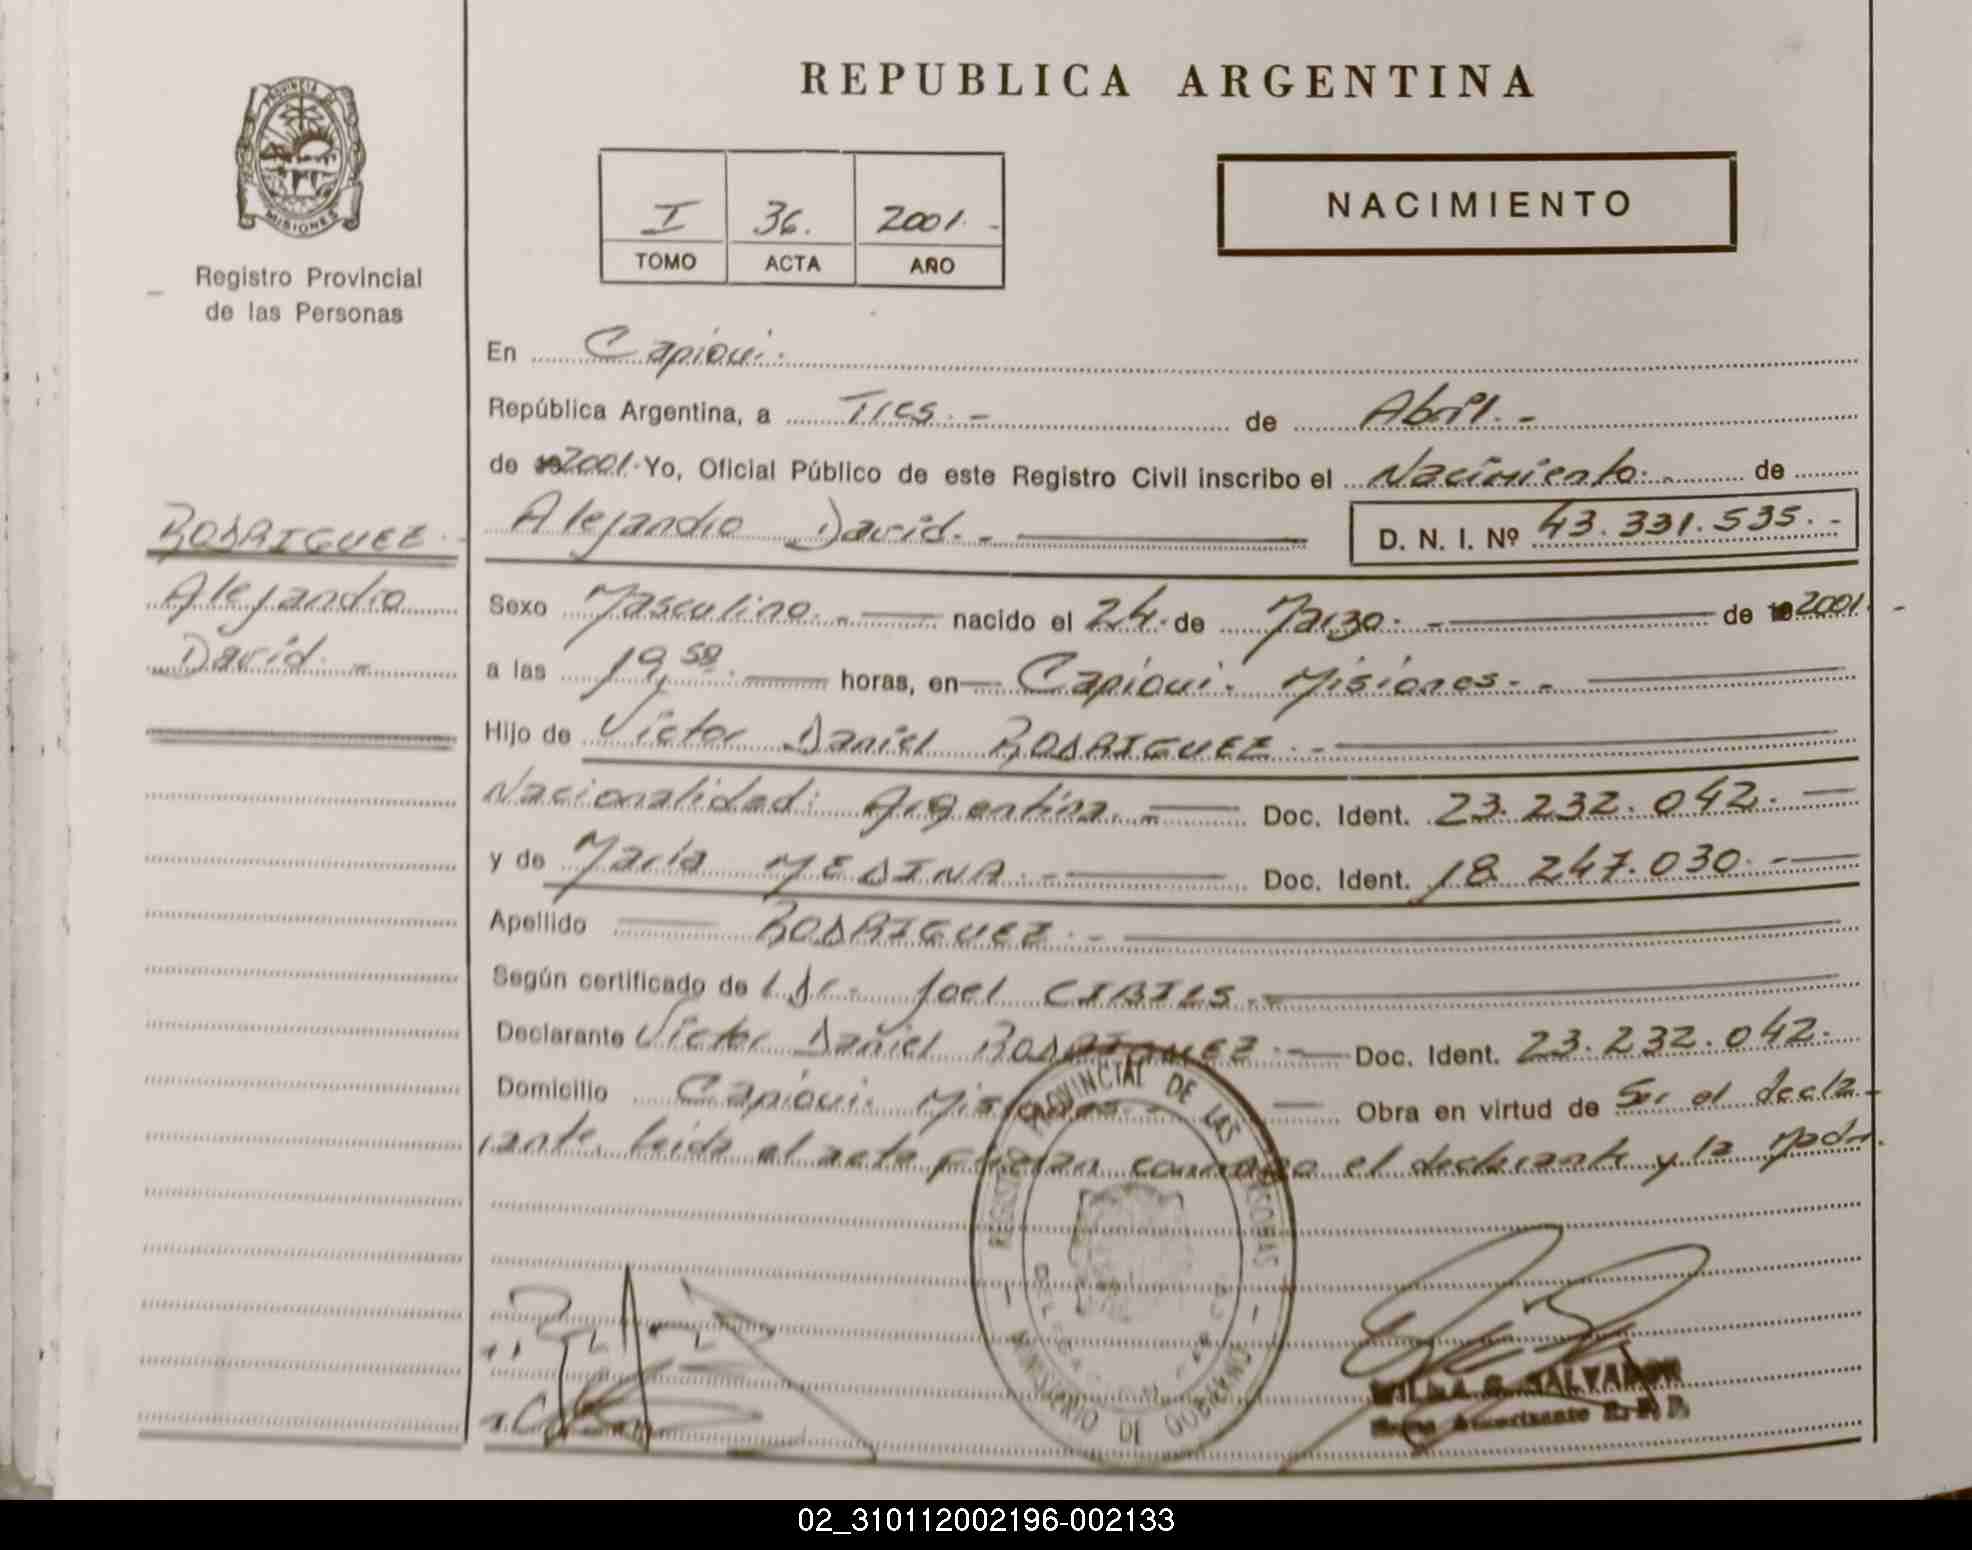 REPUBLICA ARGENTINA
PROVINCIA DE
MISIONES
Registro Provincial
de las Personas
I 36. 2001. -
TOMO ACTA AÑO
NACIMIENTO
En Capioví.
República Argentina, a Tres. - de Abril. -
de 2001. Yo, Oficial Público de este Registro Civil inscribo el Nacimiento. - de
RODRIGUEZ. -
Alejandro David. - D. N. I. Nº 43.331.535. -
Alejandro
David. -
Sexo Masculino. - nacido el 24. de Marzo. - de 19 2001. -
a las 19,50 horas, en Capioví. Misiones. -
Hijo de Victor Daniel RODRIGUEZ. -
Nacionalidad: Argentina. - Doc. Ident. 23.232.042. -
y de María MEDINA. - Doc. Ident. 18.247.030. -
Apellido RODRIGUEZ. -
Según certificado de l Dr. Joel CIBILS. -
Declarante Victor Daniel RODRIGUEZ. - Doc. Ident. 23.232.042.
Domicilio Capioví. Misiones. - Obra en virtud de Ser el decla-
rante. leida el acta firman conmigo el declarante y la Madre.
REGISTRO PROVINCIAL DE LAS PERSONAS
MINISTERIO DE GOBIERNO
SALVADOR
Autorizante R. P. P.
02_310112002196-002133